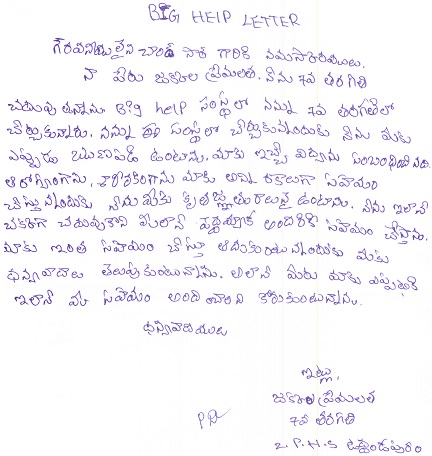 BIG HELP LETTER
గౌరవనీయులైన చాంద్ సార్ గారికి నమస్కారములు.
నా పేరు జకనల ప్రేమలత. నేను 7వ తరగతి
చదువు తున్నాను Big help సంస్థలో నన్ను 7వ తరగతిలో
చేర్చుకున్నారు. నన్ను ఈ సంస్థలో చేర్చుకున్నందుకు నేను మీకు
ఎప్పుడు ఋణపడి ఉంటాను. మాకు ఇచ్చే విద్యను సంబంధించినది.
ఆరోగ్యంగాను, శారీరకంగాను మాకు అన్ని రకాలుగా సహాయం
చేస్తు నందుకు నేను మీకు కృతజ్ఞు తురాలునై ఉంటాను. నేను ఇలానే
చకగా చదువుకొని మీలానే పెద్దయ్యాక అందరికి సహాయం చేస్తాను.
మాకు ఇంత సహాయం చేస్తూ ఆదుకుంటు నందుకు మీకు
ధన్యవాదాలు తెలుపుకుంటున్నాను. అలానే మీరు మాకు ఎప్పటికి
ఇలానే మీ సహాయం అందించాలని కోరుకుంటున్నాను.
ధన్యవాదములు
ఇట్లు,
ప్రేమలత
7వ తరగతి
Z.P.H.S ఉద్దండపురం